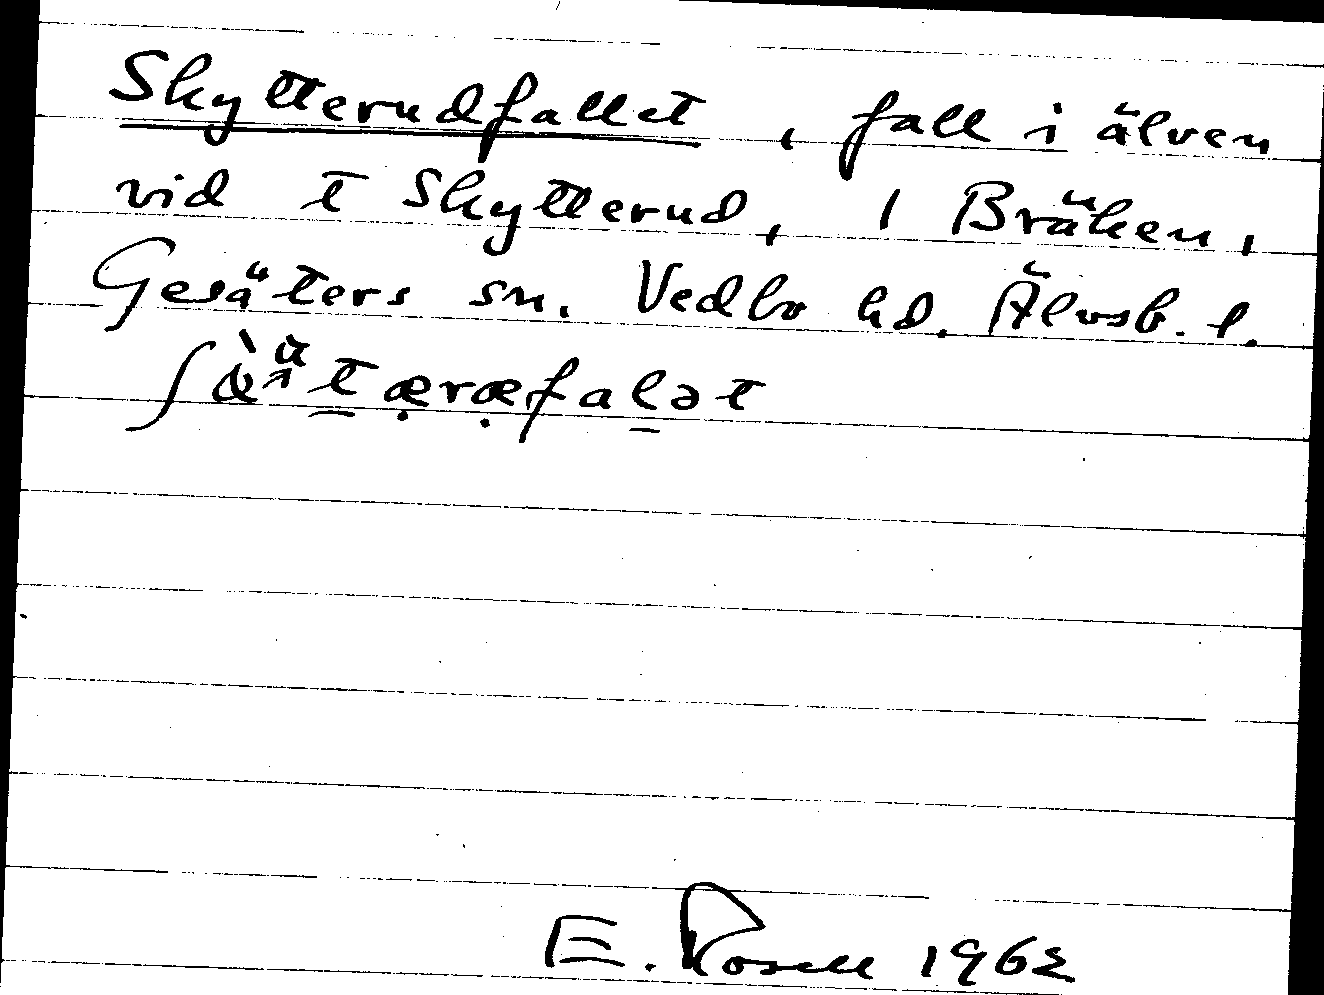 Skytterudfallet, fall i älven
vid t Skytterud, 1 Bräken,
Gesäters sn. Vedbo hd. Älvsb. l.
E. Rosell 1962